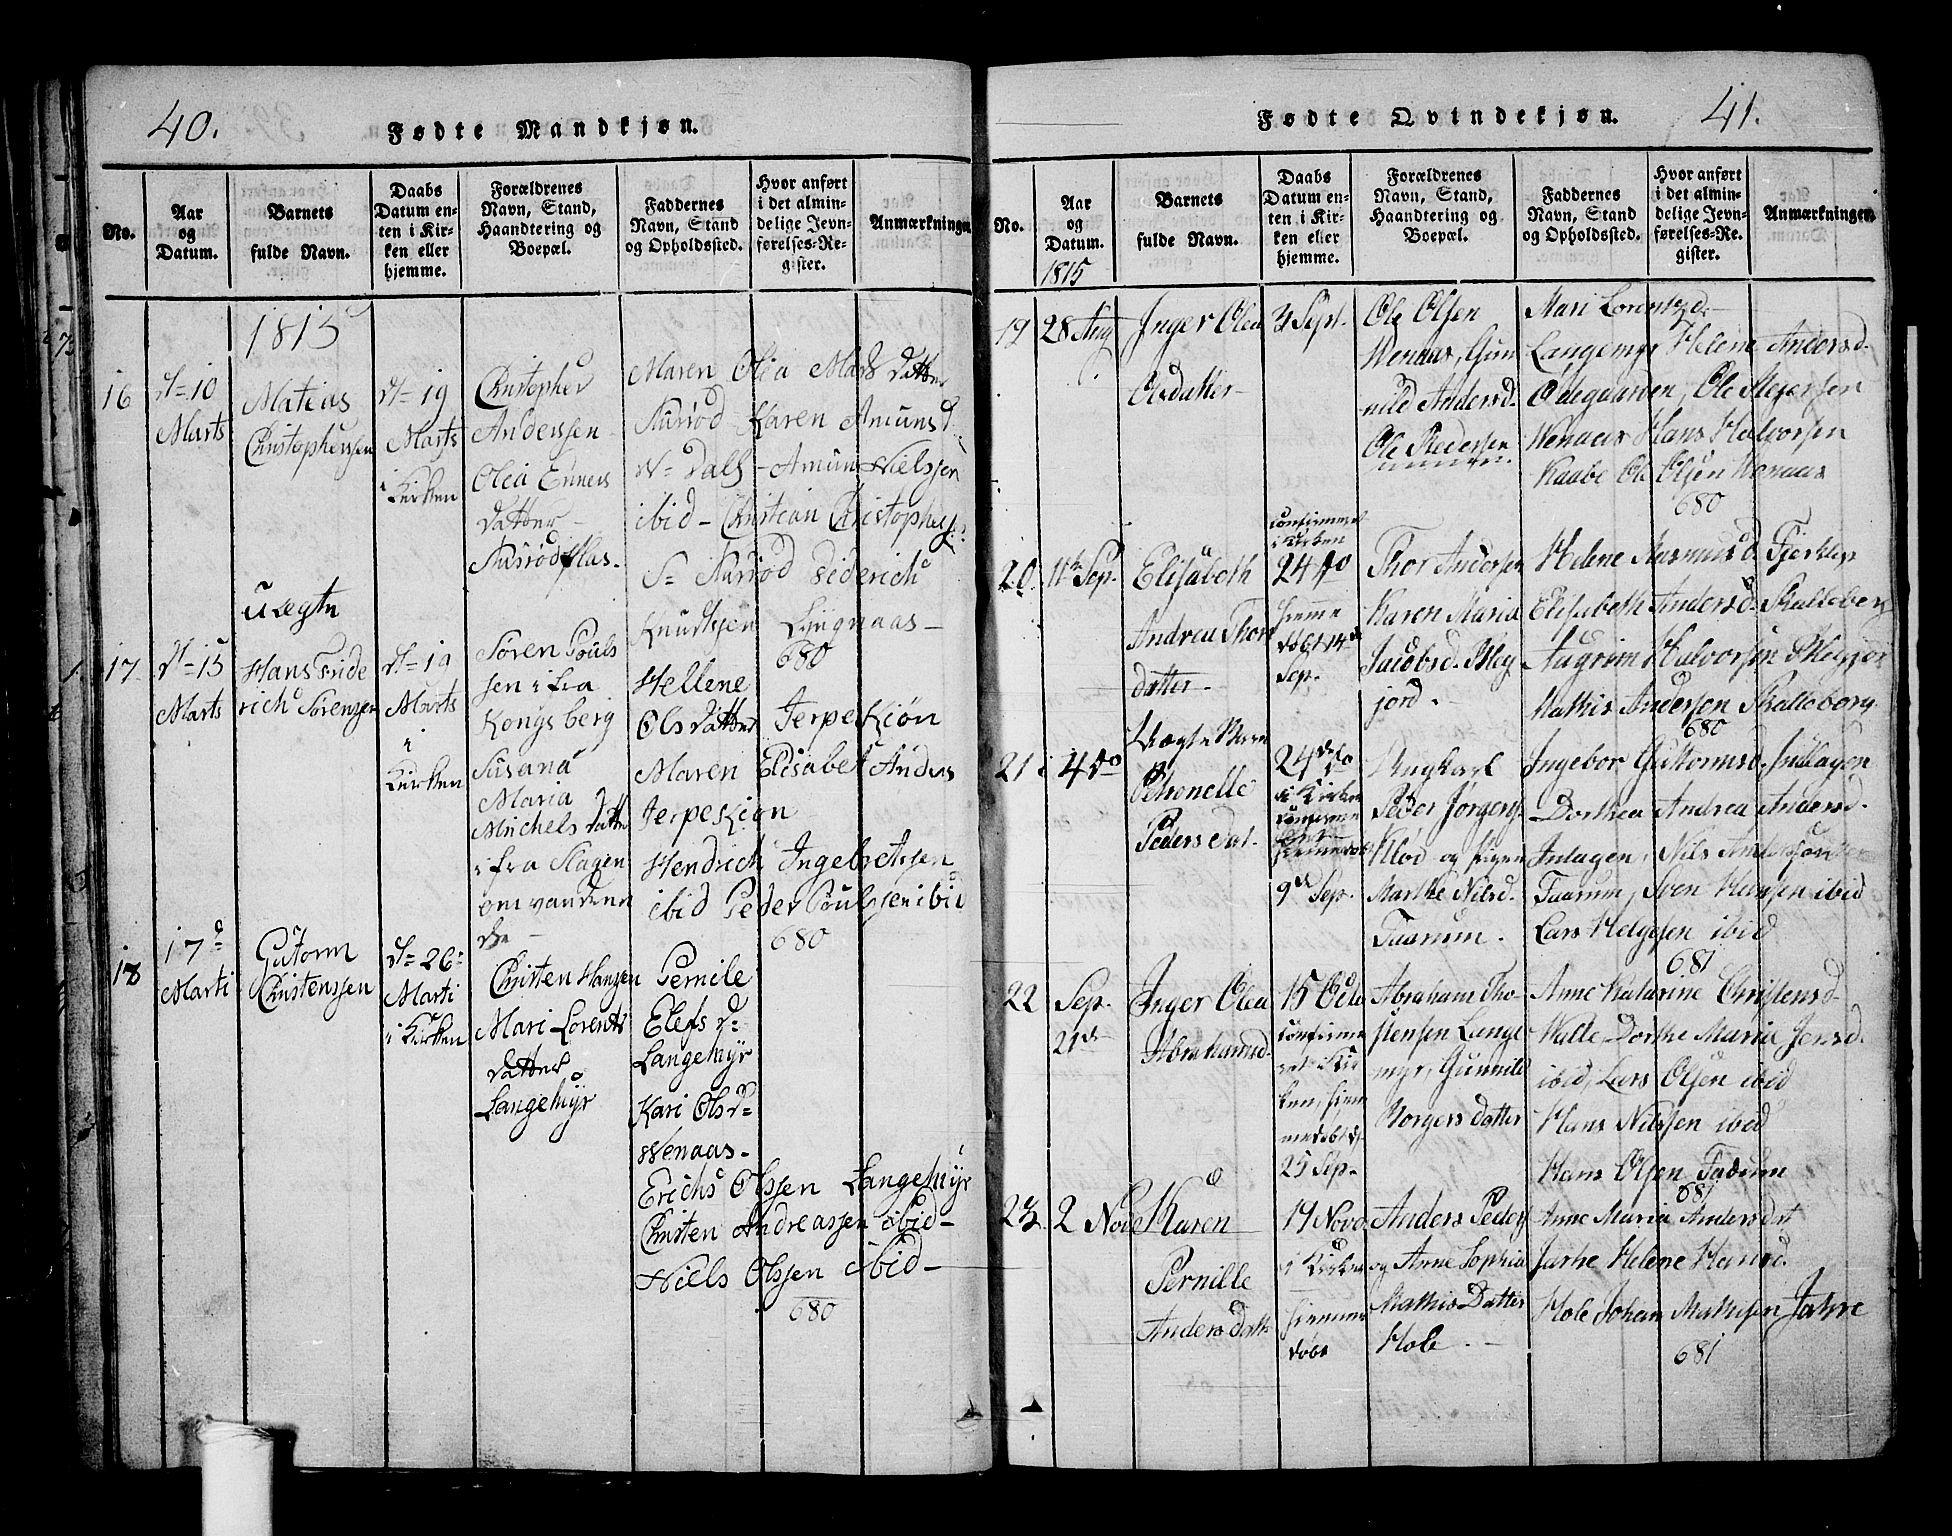 40.
Fødte Mandkjøn.
No.
Aar
og
Datum.
Barnets
fulde Navn.
Daabs
Datum en-
ten i Kir-
ken eller
hjemme.
Forældrenes
Navn, Stand,
Haandtering og
Boepæl.
Faddernes
Navn, Stand
og Opholdssted.
Hvor anført
i det almin-
delige Jevn-
førelses-Re-
gister.
Anmærkninger
1815
16
d= 10
Marts
Matius
Christophersen
d= 19
Marts
i
Kirken
Christopher
Anderssen
Olea Enners
datter
Maren Olea Mads datter
Karen Amunsd
Dals - Amun Nielssen
ibid - Christian Christophers:
S= Diderich
Knudtssen Lyngnaas -
680
17
uægte
d= 15
Marts
Hans Fride
rich Sørensen
d= 19
Marts
i
Kirken
Søren Pouls
sen i fra
Kongsberg
Susana
Maria
Michels datter
i fra Slagen
omvanden
de -
Hellene
Olsdatter Jerpekiøn
Maren Elisabet Anders
Jerpekiøn
Hendrich Ingebretssen
ibid Peder Poulssen ibid
680
18
17d
Marti
Gutorm
Christenssen
d= 26=
Marti
i Kirken
Christen Hansen
Mari Lorents
datter
Langemÿr
Pernile
Elefs d=
Langemÿr
Kari Ols d=
Wenaas -
Erichs Olssen Langemÿr
Christen Andreassen ibid -
Niels Olssen ibid -
680
41.
Fødte Qvindekjøn.
No.
Aar
og
Datum.
1815
Barnets
fulde Navn.
Daabs
Datum en-
ten i Kir-
ken eller
hjemme.
Forældrenes
Navn, Stand,
Haandtering og
Boepæl.
Faddernes
Navn, Stand
og Opholdssted.
Hvor anført
i det almin-
delige Jevn-
førelses-Re-
gister.
Anmærkninger
19
28 Aug
Inger Olea
Olsdatter
3 Sept.
Ole Olsen
Wenaas, Gun
nild Andersd.
Ole Pedersen
Mari Lorentzd
Langemyr Helene Andersd.
Ødegaarden, Ole Mejersen
Wenaas Hans Halvorsen
Kaabe Ole Olsen Wenaas
680
20
11te Sep.
Elisabeth
Andrea Thors
datter
confirmeret
i Kirken
24 do
hjemme
døbt 14d
Sep.
Thor Andersen
Karen Maria
Jacobsd.
jord.
Helene Rasmusd.
Elisabeth Andersd. Skalleberg
Halvorsen
Mathis Andersen Skalleberg
680
21
4 do
Uægte Barn
Petronelle
Peders Dat.
24de do
i Kirken
confirme
ret
9de Sep.
Ungkarl
Peder Jørgens.
Kløv og Pigen
Marthe Nilsd.
Taarum.
Ingebor Guttormsd. Indlagen
Dorthea Andrea Andersd.
Inlagen, Nils
Taarum, Sven Hansen ibid
Lars Helgesen ibid
681
22
Sep.
21d
Inger Olea
Abrahamsd.
15 Octo
confirme
ret i Kir
ken, hjem
medøbt d
25 Sep.
Abraham Tho-
stensen Lange
myr, Gunnild
Borgers datter
Anne Katarine Christensd
Walle Dorthe Maria Jensd.
ibid, Lars Olsen ibid
Hans Nilssen ibid
Hans Olsen Tadum
681
23.
2 Nove
Karen
Pernille
Anders Datt
19 Novd
i Kirken
hjemme
døbt
Anders Peders
og Anne Sophia
Mathis Datter
Hole.
Anne Maria Andersdat
Jarhe Helene Hansd.
Hole Johan Mathisen Jahre
681